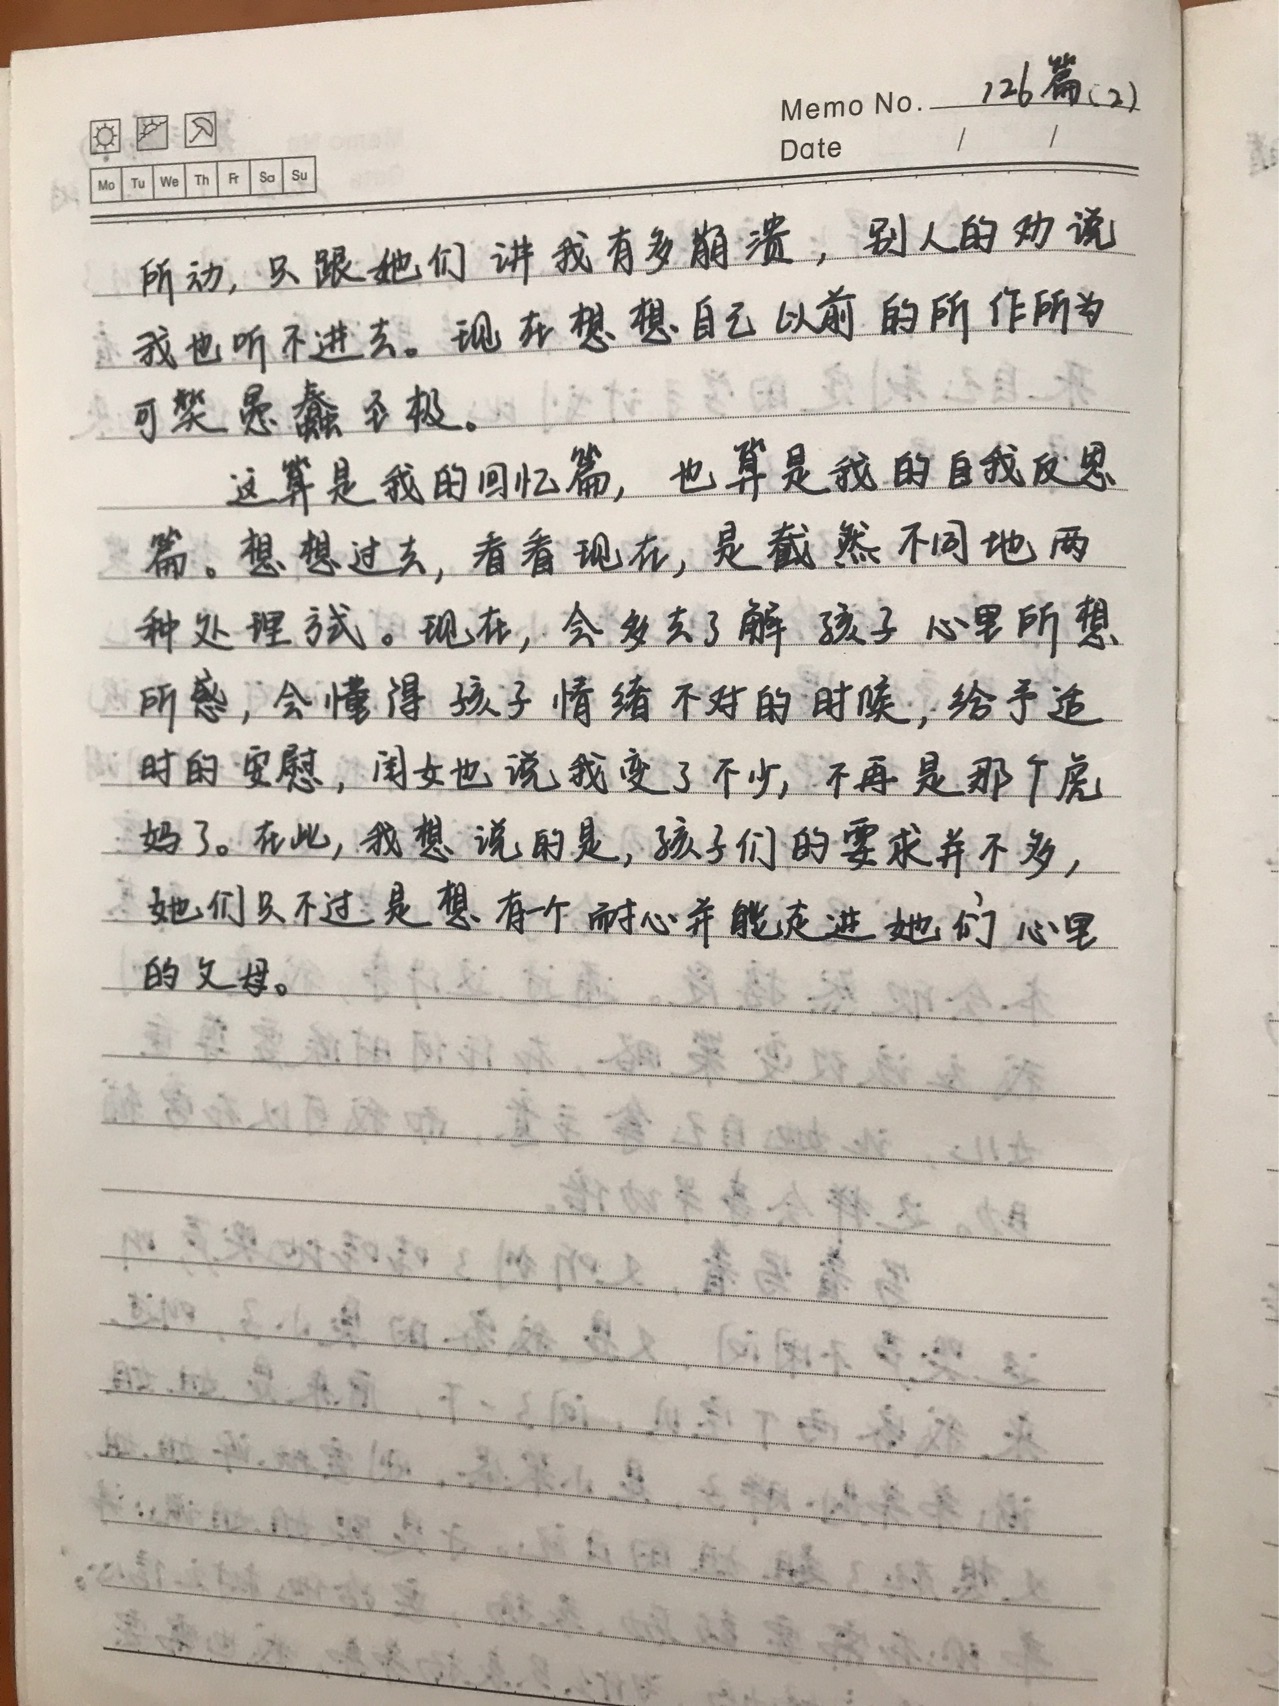 Memo No. 126篇(2)
Date / /
Mo Tu We Th Fr Sa Su
所动,只跟她们讲我有多崩溃,别人的劝说
我也听不进去。现在想想自己以前的所作所为
可笑愚蠢至极。
这算是我的回忆篇,也算是我的自我反思
篇。想想过去,看看现在,是截然不同地两
种处理方式。现在,会多去了解孩子心里所想
所感,会懂得孩子情绪不对的时候,给予适
时的安慰,闺女也说我变了不少,不再是那个虎
妈了。在此,我想说的是,孩子们的要求并不多,
她们只不过是想有一个耐心并能走进她们心里
的父母。